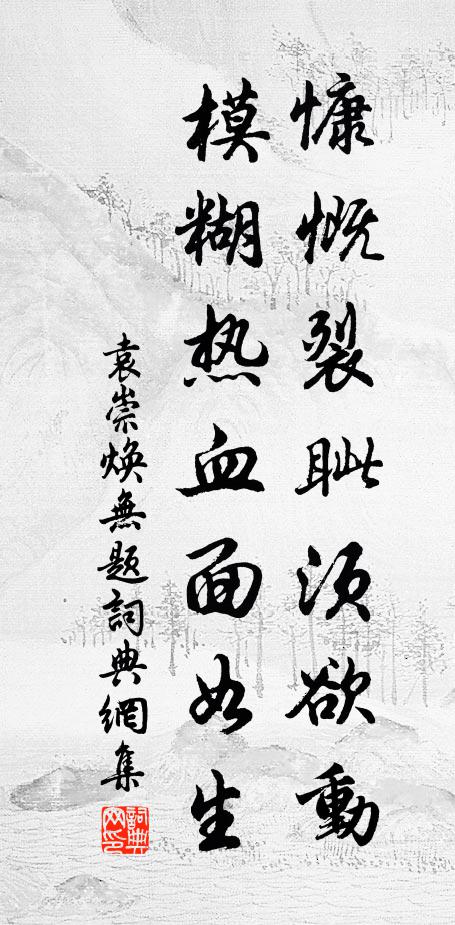 慷慨裂眦须欲動
模糊热血面如生
袁崇焕無题詞典網集
詞典网印